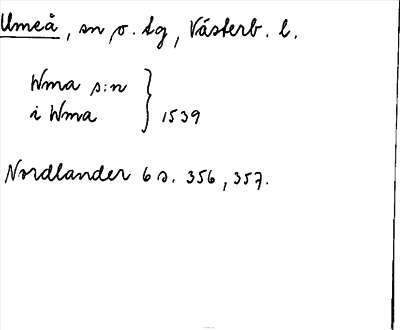 Umeå, sn o. tg, Västerb. l.
Wma s:n
i Wma } 1539
Nordlander 6 s. 356, 357.